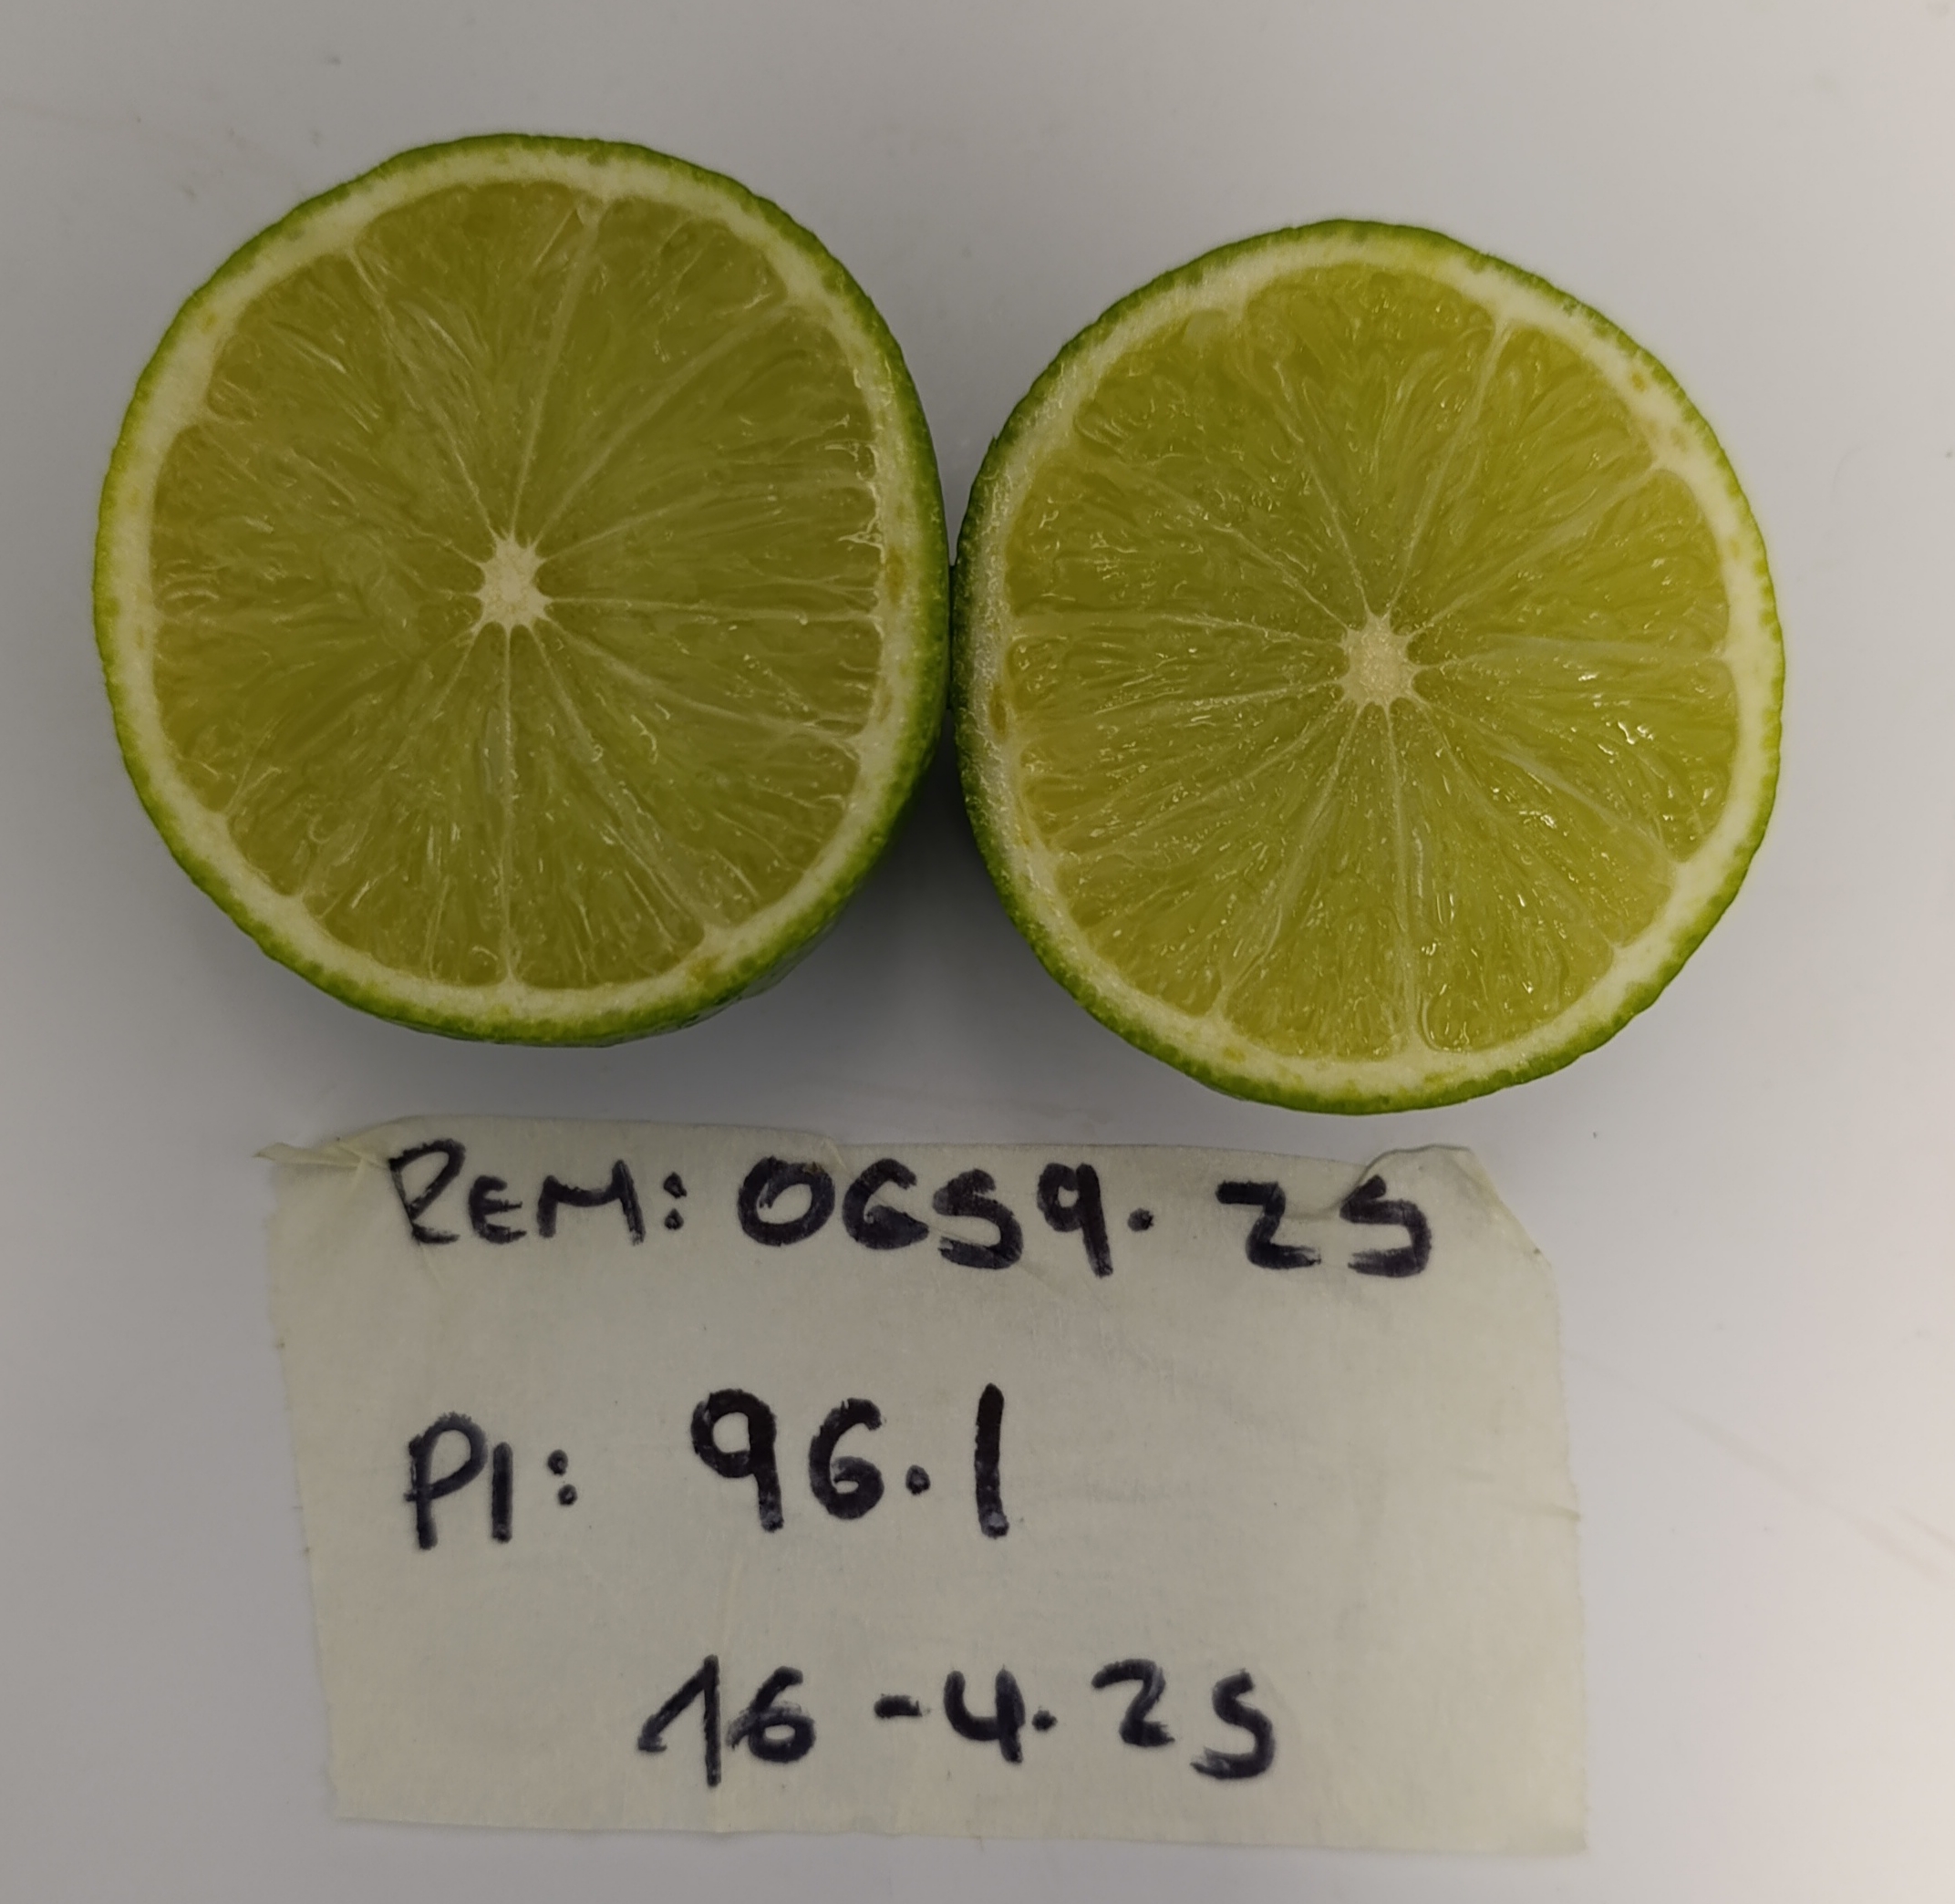 REM: 0659. 25
PI: 96.1
16-4.25